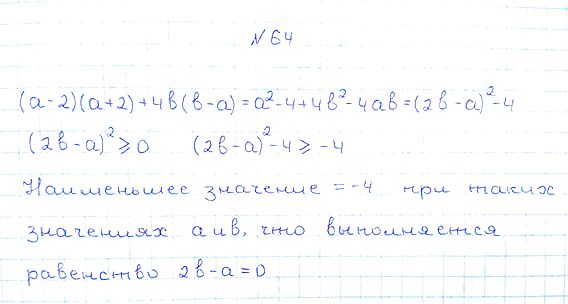 № 64
(а-2)(а+2)+4в(в-а)=а²-4+4в²-4ав=(2в-а)²-4
(2в-а)²⩾0 (2в-а)²-4⩾-4
Наименьшее значение =-4 при таких
значениях а и в, что выполняется
равенство 2в-а=0